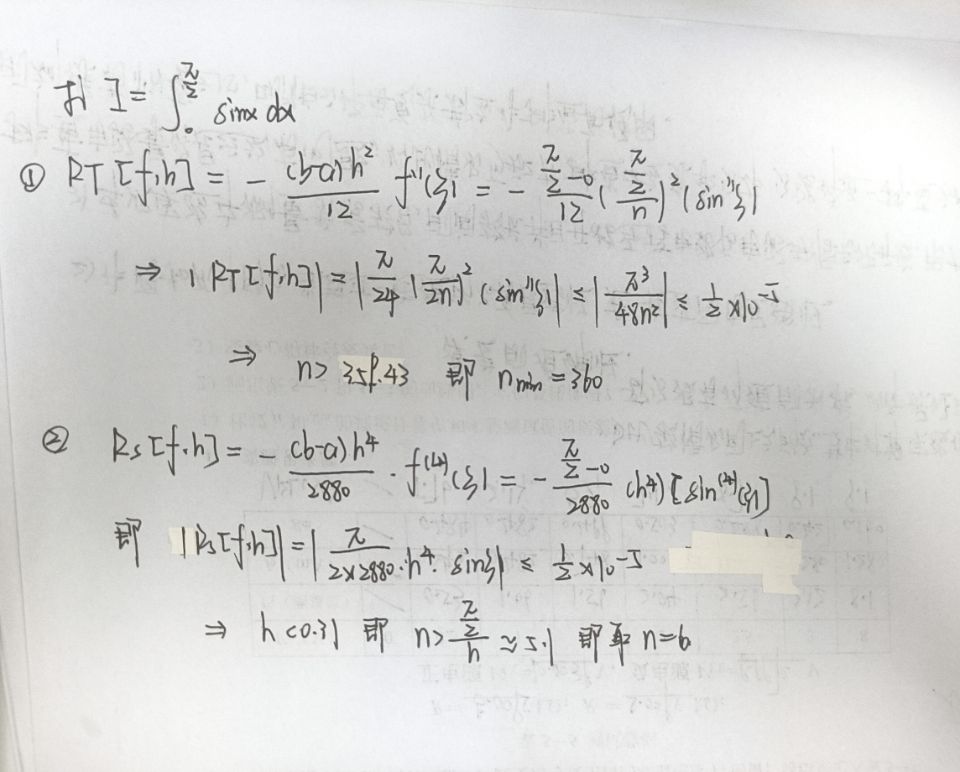 对 I = ∫₀^{π/2} sinx dx
① RT[f,h] = - (b-a)h²/12 f''(ξ) = - (π/2 - 0)/12 ((π/2)/n)² (sin''ξ)
⇒ |RT[f,h]| = |π/24 (π/2n)² (sin''ξ)| ≤ |π³/48n²| ≤ 1/2 × 10⁻⁵
⇒ n > 359.43 即 n_min = 360
② Rs[f,h] = - (b-a)h⁴/2880 · f⁽⁴⁾(ξ) = - (π/2 - 0)/2880 (h⁴) [sin⁽⁴⁾(ξ)]
即 |Rs[f,h]| = |π/(2×2880) · h⁴ · sinξ| ≤ 1/2 × 10⁻⁵
⇒ h < 0.31 即 n > (π/2)/h ≈ 5.1 即取 n=6